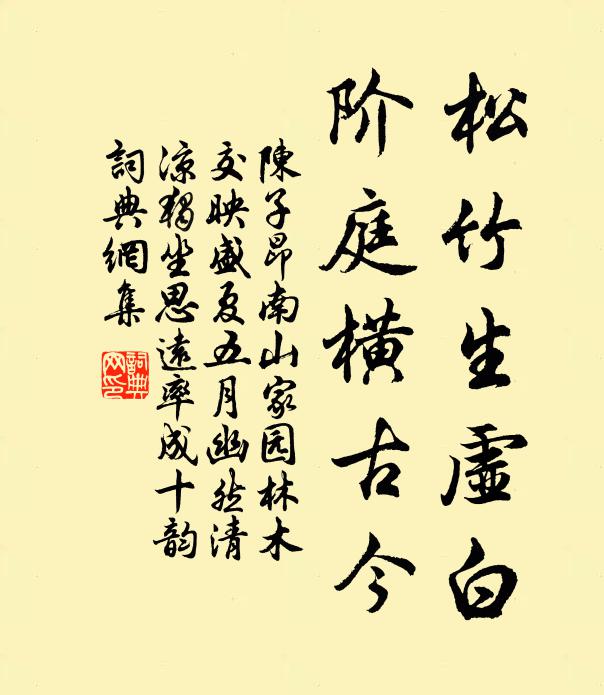 松竹生虚白
阶庭横古今
陳子昂南山家园林木
交映盛夏五月幽然清
凉獨坐思遠率成十韵
詞典網集
詞典
网印